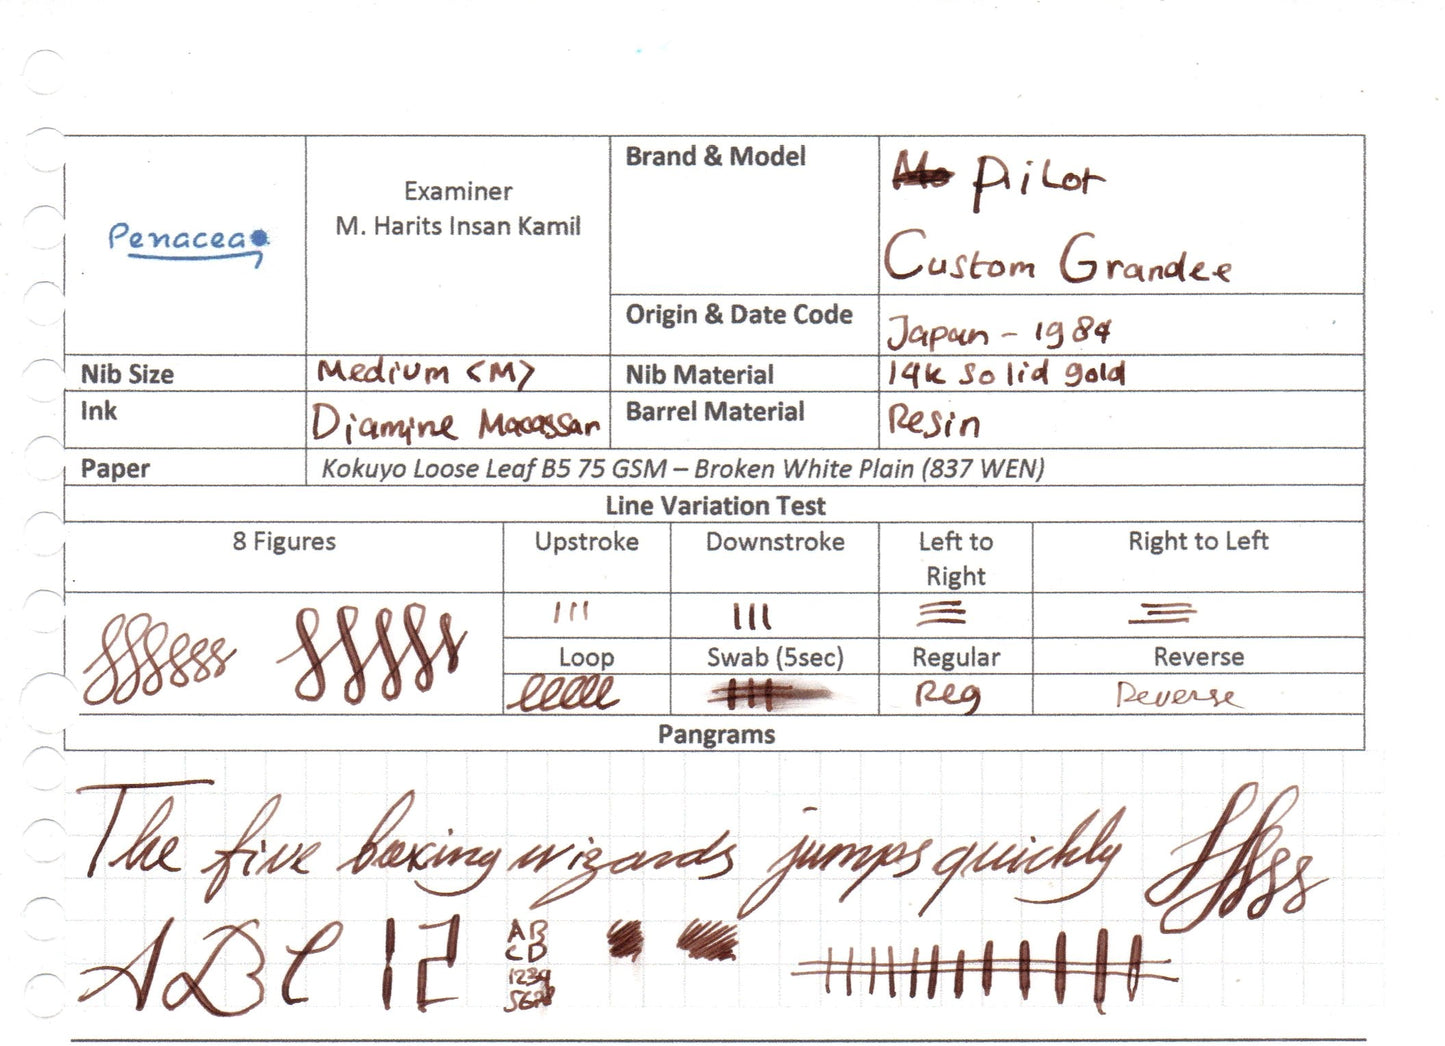 Penacea
Examiner
M. Harits Insan Kamil
Brand & Model
Pilot
Custom Grandee
Origin & Date Code
Japan - 1984
Nib Size
Medium <M>
Nib Material
14k solid gold
Ink
Diamine Macassar
Barrel Material
Resin
Paper
Kokuyo Loose Leaf B5 75 GSM – Broken White Plain (837 WEN)
Line Variation Test
8 Figures
Upstroke
Downstroke
Left to
Right
Right to Left
Loop
Swab (5sec)
Regular
Reverse
Reg
Reverse
Pangrams
The five boxing wizards jumps quickly
ABC 12
AB
CD
1234
5678